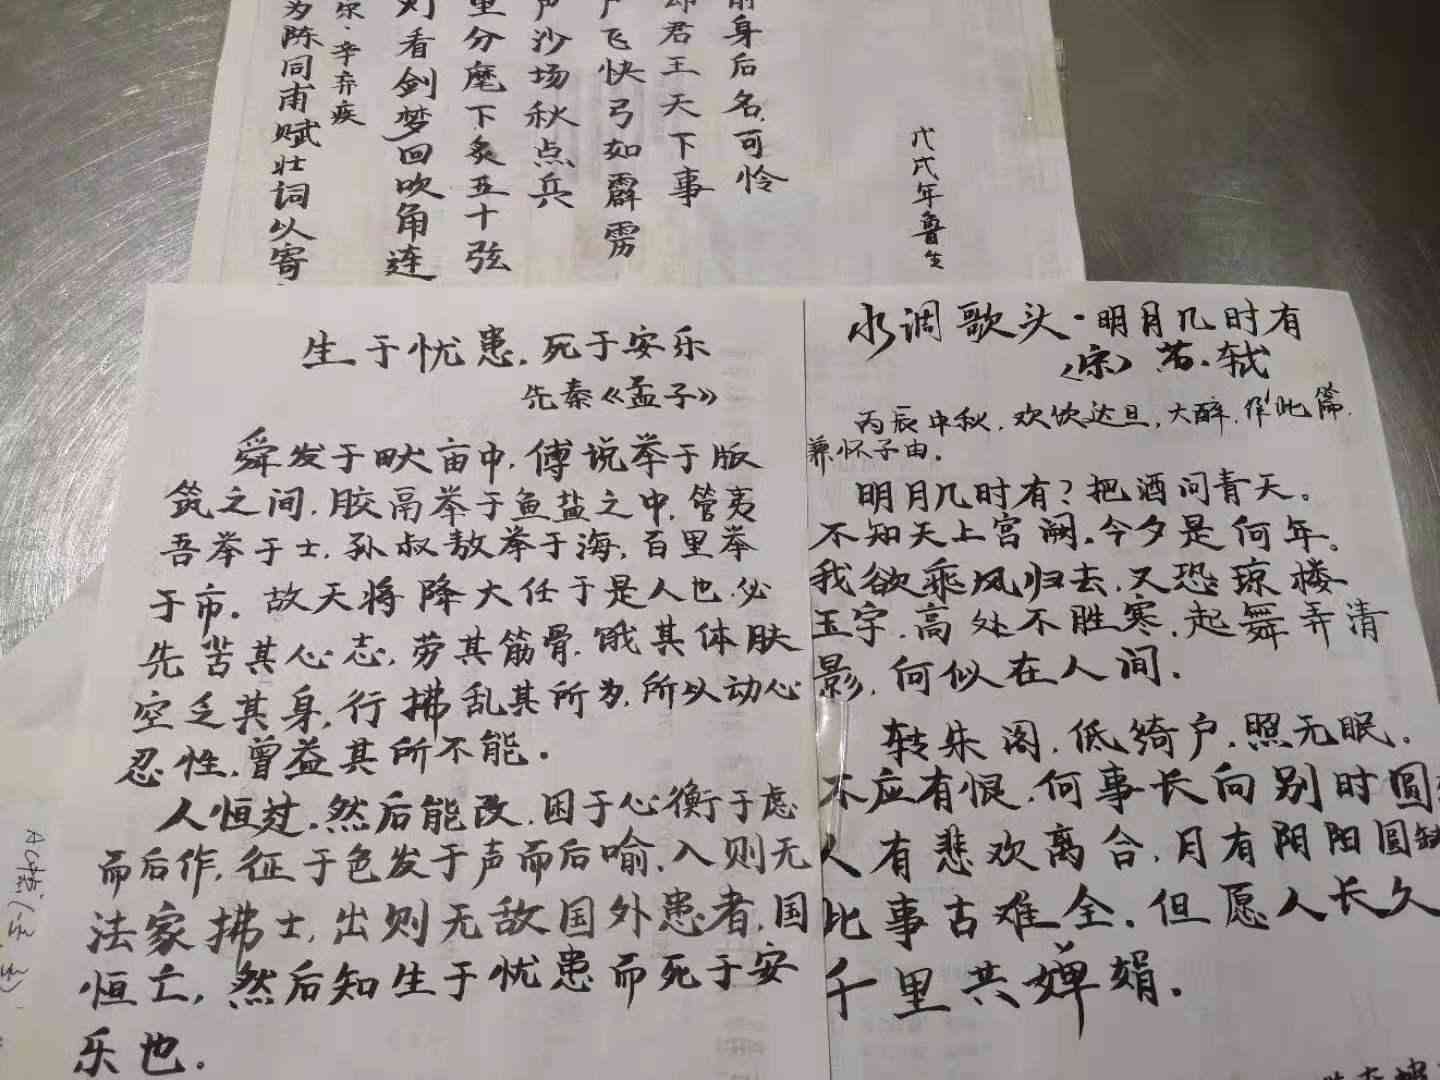 前身后名.可怜
却君王天下事
飞快弓如霹雳
声沙场秋点兵
里分麾下炙五十弦
看剑梦回吹角连
宋·辛弃疾
为陈同甫赋壮词以寄
戊戌年鲁生
生于忧患.死于安乐
先秦《孟子》
舜发于畎亩中,傅说举于版
筑之间,胶鬲举于鱼盐之中,管夷
吾举于士,孙叔敖举于海,百里举
于市。故天将降大任于是人也,必
先苦其心志,劳其筋骨,饿其体肤
空乏其身,行拂乱其所为,所以动心
忍性,曾益其所不能。
人恒过.然后能改.困于心衡于虑
而后作,征于色发于声而后喻.入则无
法家拂士,出则无敌国外患者,国
恒亡,然后知生于忧患而死于安
乐也.
水调歌头·明月几时有
〈宋〉苏·轼
丙辰中秋.欢饮达旦,大醉.作此篇.
兼怀子由。
明月几时有?把酒问青天。
不知天上宫阙。今夕是何年。
我欲乘风归去,又恐琼楼
玉宇.高处不胜寒.起舞弄清
影.何似在人间.
转朱阁.低绮户.照无眠.
不应有恨.何事长向别时圆
人有悲欢离合.月有阴阳圆缺
此事古难全.但愿人长久
千里共婵娟.